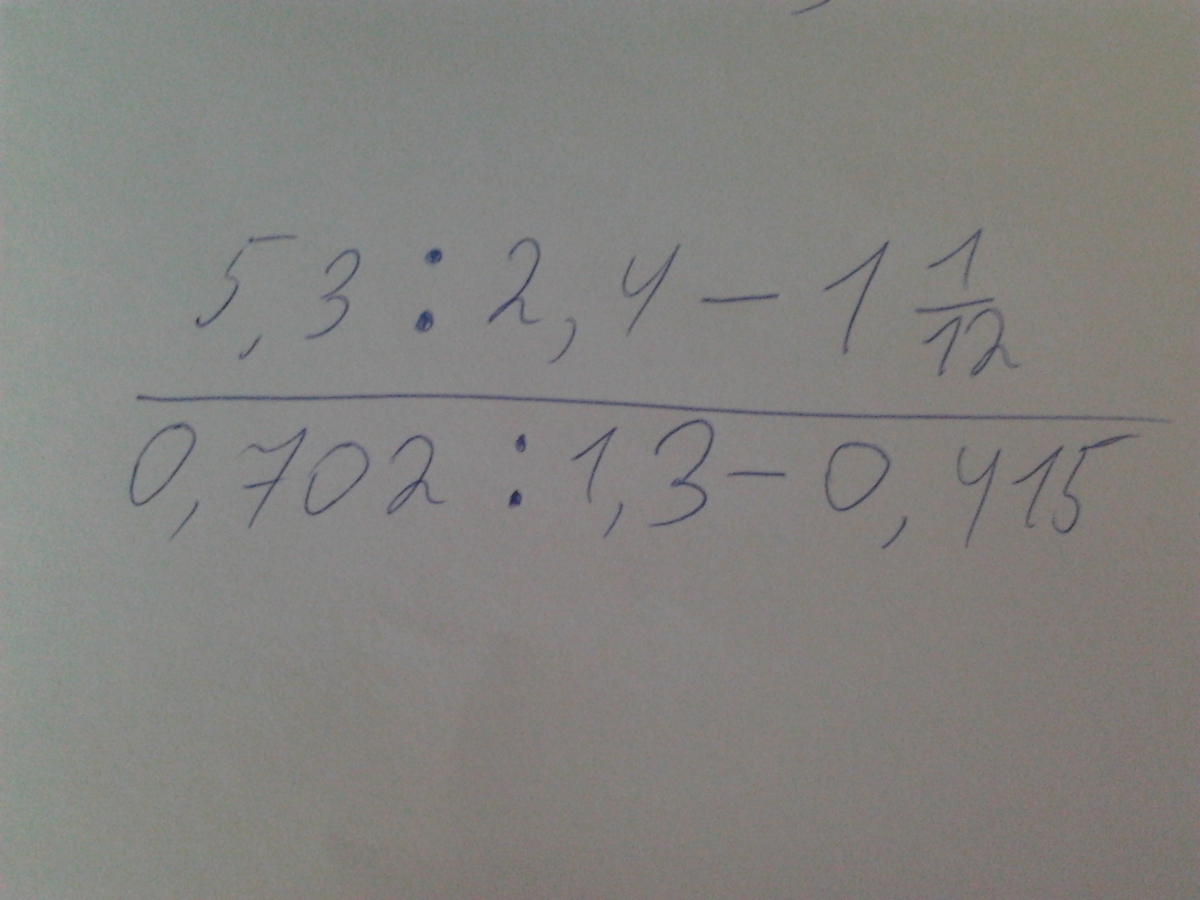 5,3 : 2,4 - 1 1/12
0,702 : 1,3 - 0,415